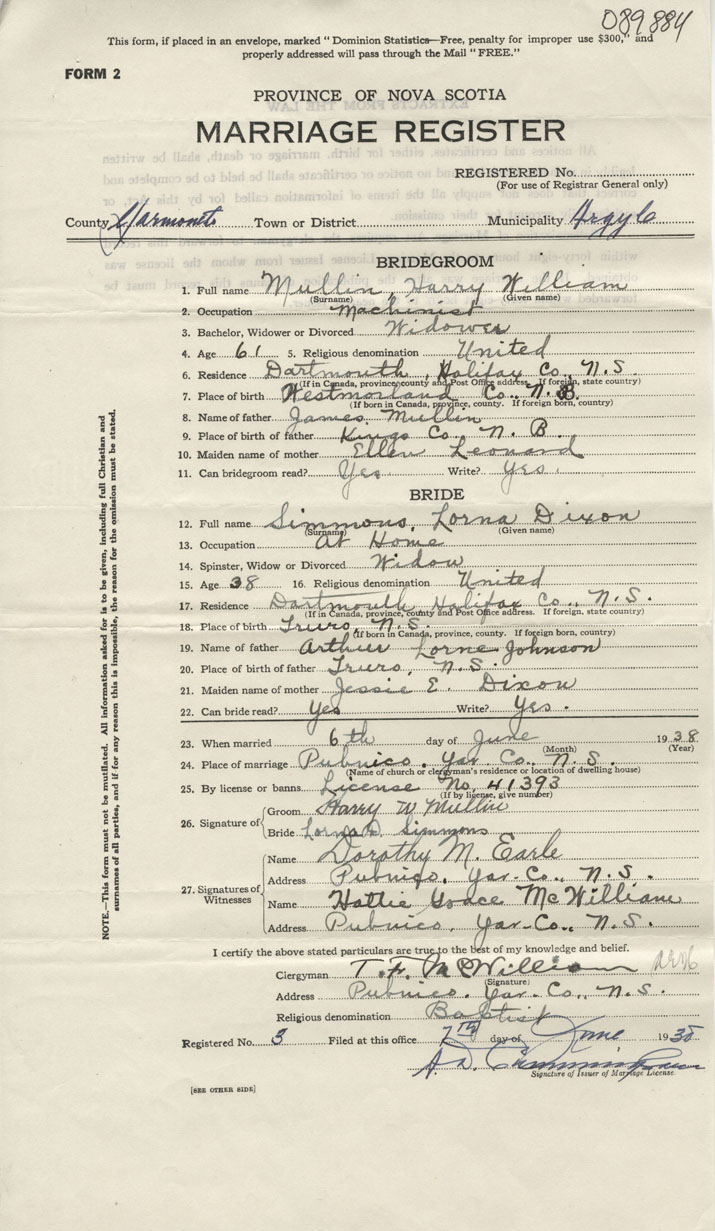 089884
This form, if placed in an envelope, marked "Dominion Statistics—Free, penalty for improper use $300," and
properly addressed will pass through the Mail "FREE."
FORM 2
PROVINCE OF NOVA SCOTIA
MARRIAGE REGISTER
REGISTERED No.
(For use of Registrar General only)
County Yarmouth Town or District Municipality Argyle
BRIDEGROOM
1. Full name Mullin, Harry William
(Surname) (Given name)
2. Occupation Machinist
3. Bachelor, Widower or Divorced Widower
4. Age 61 5. Religious denomination United
6. Residence Dartmouth, Halifax Co., N.S.
(If in Canada, province, county and Post Office address. If foreign, state country)
7. Place of birth Westmorland Co., N.B.
(If born in Canada, province, county. If foreign born, country)
8. Name of father James Mullin
9. Place of birth of father Kings Co. N.B.
10. Maiden name of mother Ellen Leonard
11. Can bridegroom read? Yes Write? Yes.
BRIDE
12. Full name Simmons, Lorna Dixon
(Surname) (Given name)
13. Occupation At Home
14. Spinster, Widow or Divorced Widow
15. Age 38 16. Religious denomination United
17. Residence Dartmouth Halifax Co., N.S.
(If in Canada, province, county and Post Office address. If foreign, state country)
18. Place of birth Truro, N.S.
(If born in Canada, province, county. If foreign born, country)
19. Name of father Arthur Lorne Johnson
20. Place of birth of father Truro, N.S.
21. Maiden name of mother Jessie E. Dixon
22. Can bride read? Yes Write? Yes.
23. When married 6th day of June 1938
(Month) (Year)
24. Place of marriage Pubnico, Yar Co., N.S.
(Name of church or clergyman's residence or location of dwelling house)
25. By license or banns License No. 41393
(If by license, give number)
26. Signature of
Groom Harry W Mullin
Bride Lorna D. Simmons
27. Signatures of Witnesses
Name Dorothy M. Earle
Address Pubnico, Yar-Co., N.S.
Name Hattie Grace McWilliam
Address Pubnico, Yar-Co., N.S.
I certify the above stated particulars are true to the best of my knowledge and belief.
Clergyman T. F. McWilliam
(Signature)
Address Pubnico, Yar-Co., N.S.
Religious denomination Baptist
Registered No. 3 Filed at this office 7th day of June 1938
Signature of Issuer of Marriage License.
[SEE OTHER SIDE]
NOTE.—This form must not be mutilated. All information asked for is to be given, including full Christian and
surnames of all parties, and if for any reason this is impossible, the reason for the omission must be stated.